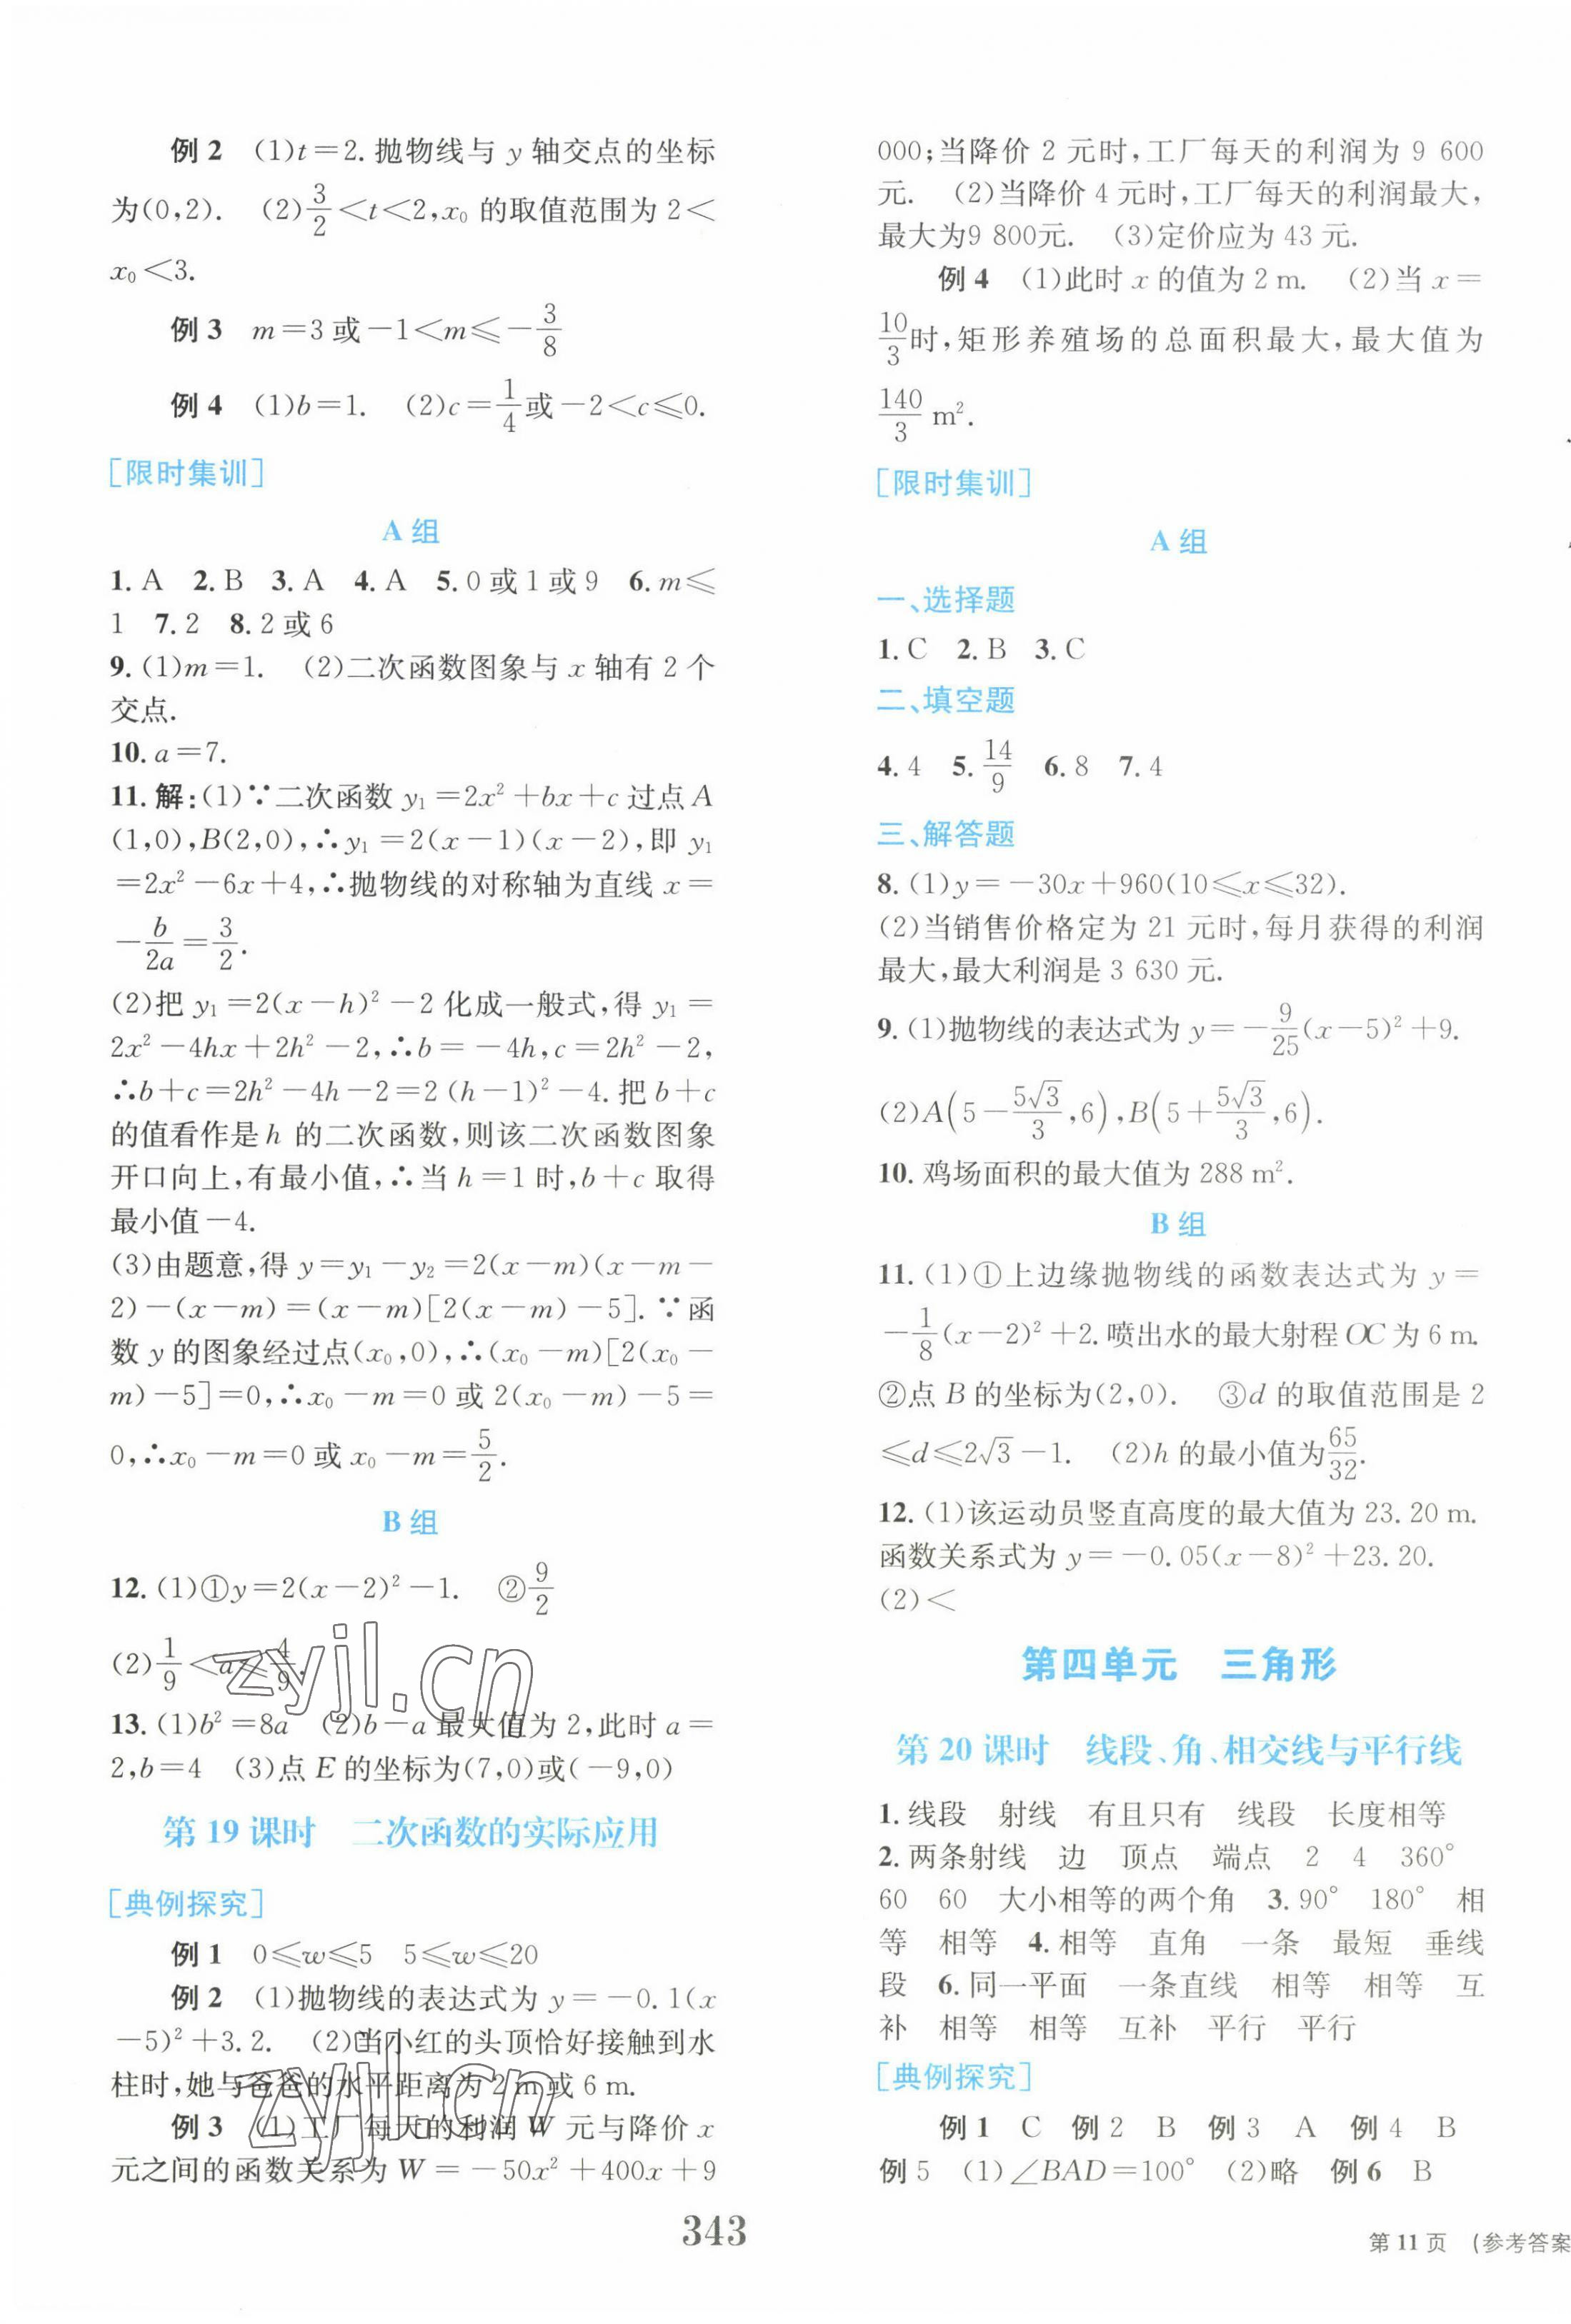 例2 (1)t=2. 抛物线与 y 轴交点的坐标
为(0,2). (2)3/2<t<2,x₀ 的取值范围为 2<
x₀<3.
例3 m=3 或-1<m≤-3/8
例4 (1)b=1. (2)c=1/4或-2<c≤0.
[限时集训]
A 组
1. A 2. B 3. A 4. A 5. 0 或 1 或 9 6. m≤
1 7. 2 8. 2 或 6
9. (1)m=1. (2)二次函数图象与 x 轴有 2 个
交点.
10. a=7.
11. 解:(1)∵二次函数 y₁=2x²+bx+c 过点 A
(1,0),B(2,0),∴y₁=2(x-1)(x-2),即 y₁
=2x²-6x+4,∴抛物线的对称轴为直线 x=
-b/2a=3/2.
(2)把 y₁=2(x-h)²-2 化成一般式,得 y₁=
2x²-4hx+2h²-2,∴b=-4h,c=2h²-2,
∴b+c=2h²-4h-2=2(h-1)²-4. 把 b+c
的值看作是 h 的二次函数,则该二次函数图象
开口向上,有最小值,∴当 h=1 时,b+c 取得
最小值-4.
(3)由题意,得 y=y₁-y₂=2(x-m)(x-m-
2)-(x-m)=(x-m)[2(x-m)-5]. ∵函
数 y 的图象经过点(x₀,0),∴(x₀-m)[2(x₀-
m)-5]=0,∴x₀-m=0 或 2(x₀-m)-5=
0,∴x₀-m=0 或 x₀-m=5/2.
B 组
12. (1)①y=2(x-2)²-1. ②9/2
(2)1/9<a≤4/9.
zyjl.cn
13. (1)b²=8a (2)b-a 最大值为 2,此时 a=
2,b=4 (3)点 E 的坐标为(7,0)或(-9,0)
第 19 课时 二次函数的实际应用
[典例探究]
例1 0≤w≤5 5≤w≤20
例2 (1)抛物线的表达式为 y=-0.1(x
-5)²+3.2. (2)当小红的头顶恰好接触到水
柱时,她与爸爸的水平距离为 2 m 或 6 m.
zyjl.cn
例3 (1)工厂每天的利润 W 元与降价 x
元之间的函数关系为 W=-50x²+400x+9
000;当降价 2 元时,工厂每天的利润为 9 600
元. (2)当降价 4 元时,工厂每天的利润最大,
最大为9 800元. (3)定价应为 43 元.
例4 (1)此时 x 的值为 2 m. (2)当 x=
10/3时,矩形养殖场的总面积最大,最大值为
140/3 m².
[限时集训]
A 组
一、选择题
1. C 2. B 3. C
二、填空题
4. 4 5. 14/9 6. 8 7. 4
三、解答题
8. (1)y=-30x+960(10≤x≤32).
(2)当销售价格定为 21 元时,每月获得的利润
最大,最大利润是 3 630 元.
9. (1)抛物线的表达式为 y=-9/25(x-5)²+9.
(2)A(5-5√3/3,6),B(5+5√3/3,6).
10. 鸡场面积的最大值为 288 m².
B 组
11. (1)①上边缘抛物线的函数表达式为 y=
-1/8(x-2)²+2. 喷出水的最大射程 OC 为 6 m.
②点 B 的坐标为(2,0). ③d 的取值范围是 2
≤d≤2√3-1. (2)h 的最小值为65/32.
12. (1)该运动员竖直高度的最大值为 23.20 m.
函数关系式为 y=-0.05(x-8)²+23.20.
(2)<
第四单元 三角形
第 20 课时 线段、角、相交线与平行线
1. 线段 射线 有且只有 线段 长度相等
2. 两条射线 边 顶点 端点 2 4 360°
60 60 大小相等的两个角 3. 90° 180° 相
等 相等 4. 相等 直角 一条 最短 垂线
段 6. 同一平面 一条直线 相等 相等 互
补 相等 相等 互补 平行 平行
[典例探究]
例1 C 例2 B 例3 A 例4 B
例5 (1)∠BAD=100° (2)略 例6 B
343
第 11 页 (参考答案